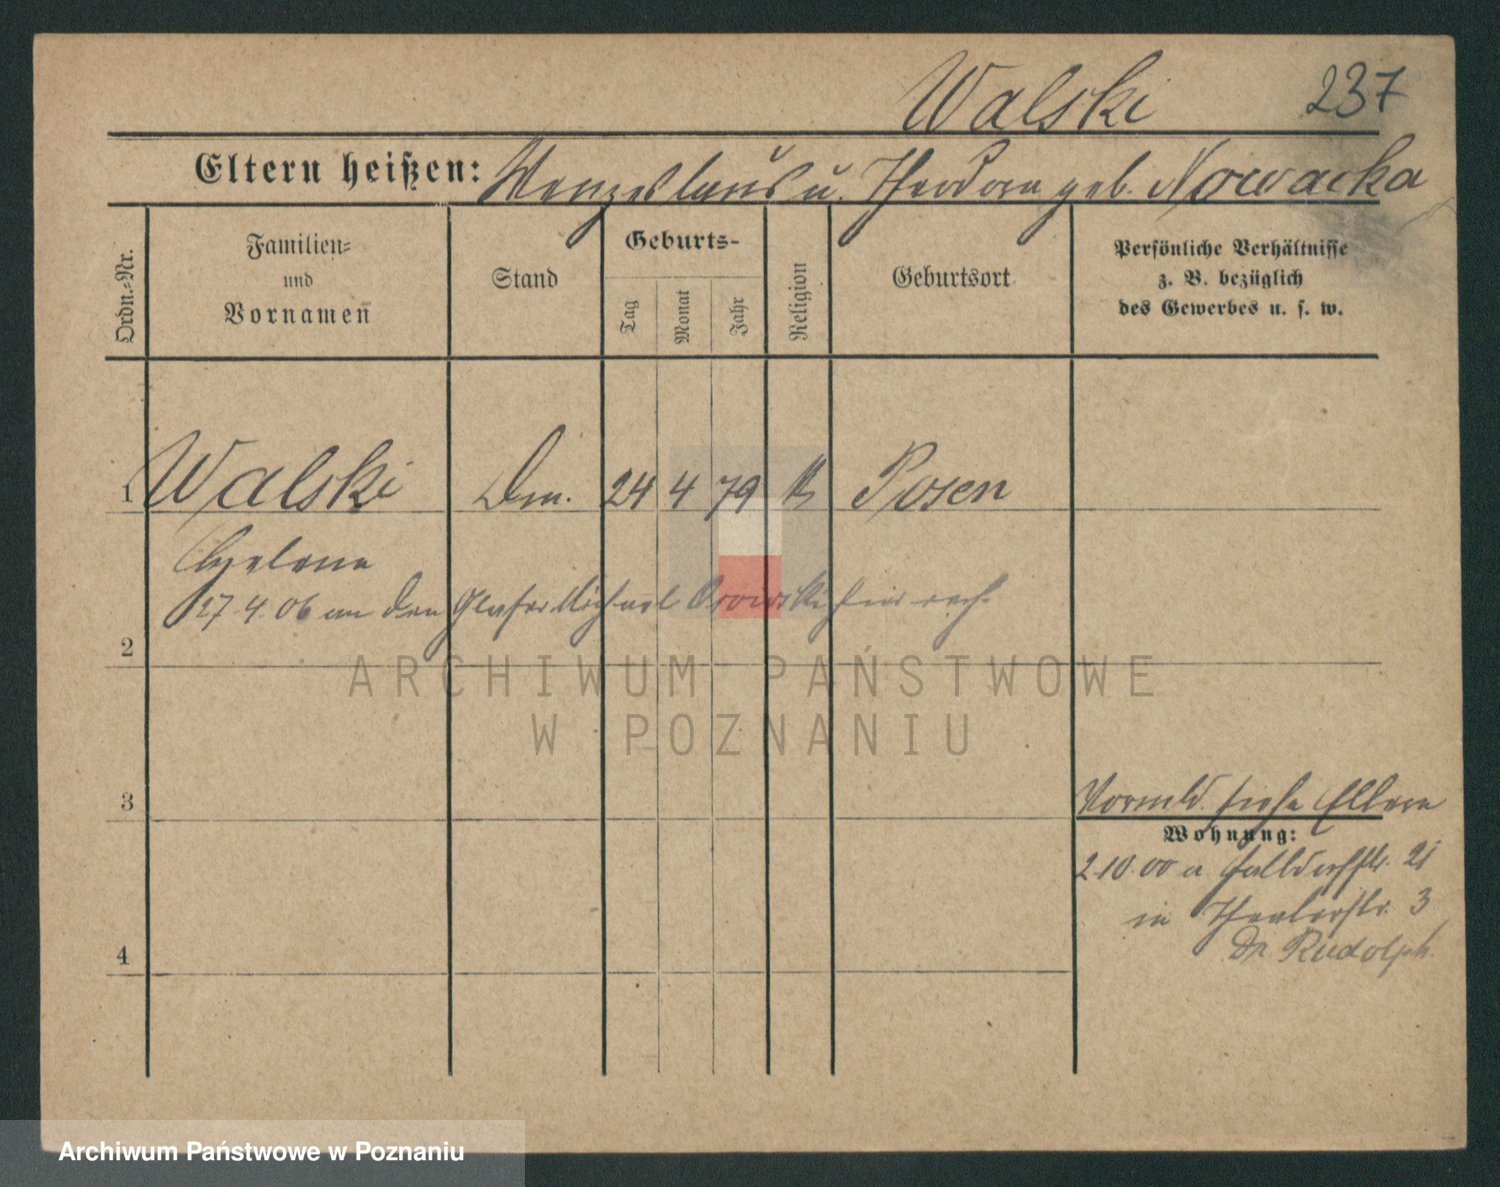 Walski 237
Eltern heißen: Wenzeslaus u. Theodora geb. Nowacka
Ordn.-Nr.
Familien-
und
Vornamen
Stand
Geburts-
Tag
Monat
Jahr
Religion
Geburtsort
Persönliche Verhältnisse
z. B. bezüglich
des Gewerbes u. s. w.
1 Walski Dm. 24 4 79 K Posen
Helena
27.4.06 an den Glaser Michael verh.
2
ARCHIWUM PAŃSTWOWE
W POZNANIU
3
Vormld. siehe Eltern
Wohnung:
2.10.00 a 21
in Theaterstr. 3
Dr Rudolph.
4
Archiwum Państwowe w Poznaniu